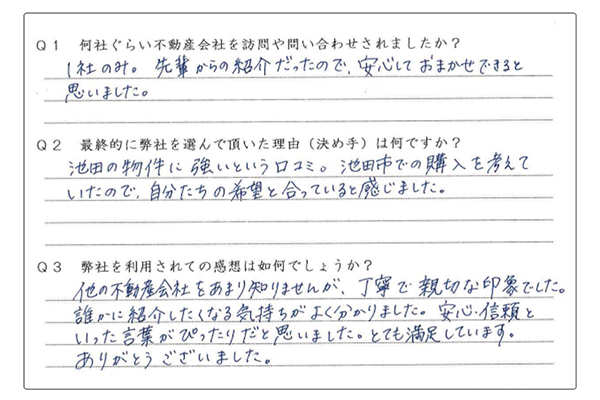 Q1 何社ぐらい不動産会社を訪問や問い合わせされましたか？
1社のみ。先輩からの紹介だったので、安心しておまかせできると
思いました。
Q2 最終的に弊社を選んで頂いた理由（決め手）は何ですか？
池田の物件に強いという口コミ。池田市での購入を考えて
いたので、自分たちの希望と合っていると感じました。
Q3 弊社を利用されての感想は如何でしょうか？
他の不動産会社をあまり知りませんが、丁寧で親切な印象でした。
誰かに紹介したくなる気持ちがよく分かりました。安心・信頼と
いった言葉がぴったりだと思いました。とても満足しています。
ありがとうございました。